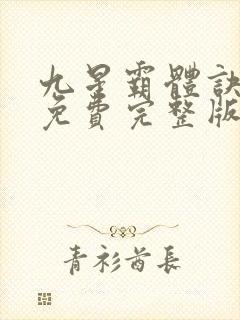 九星霸體訣
免費完整版
青衫酋長